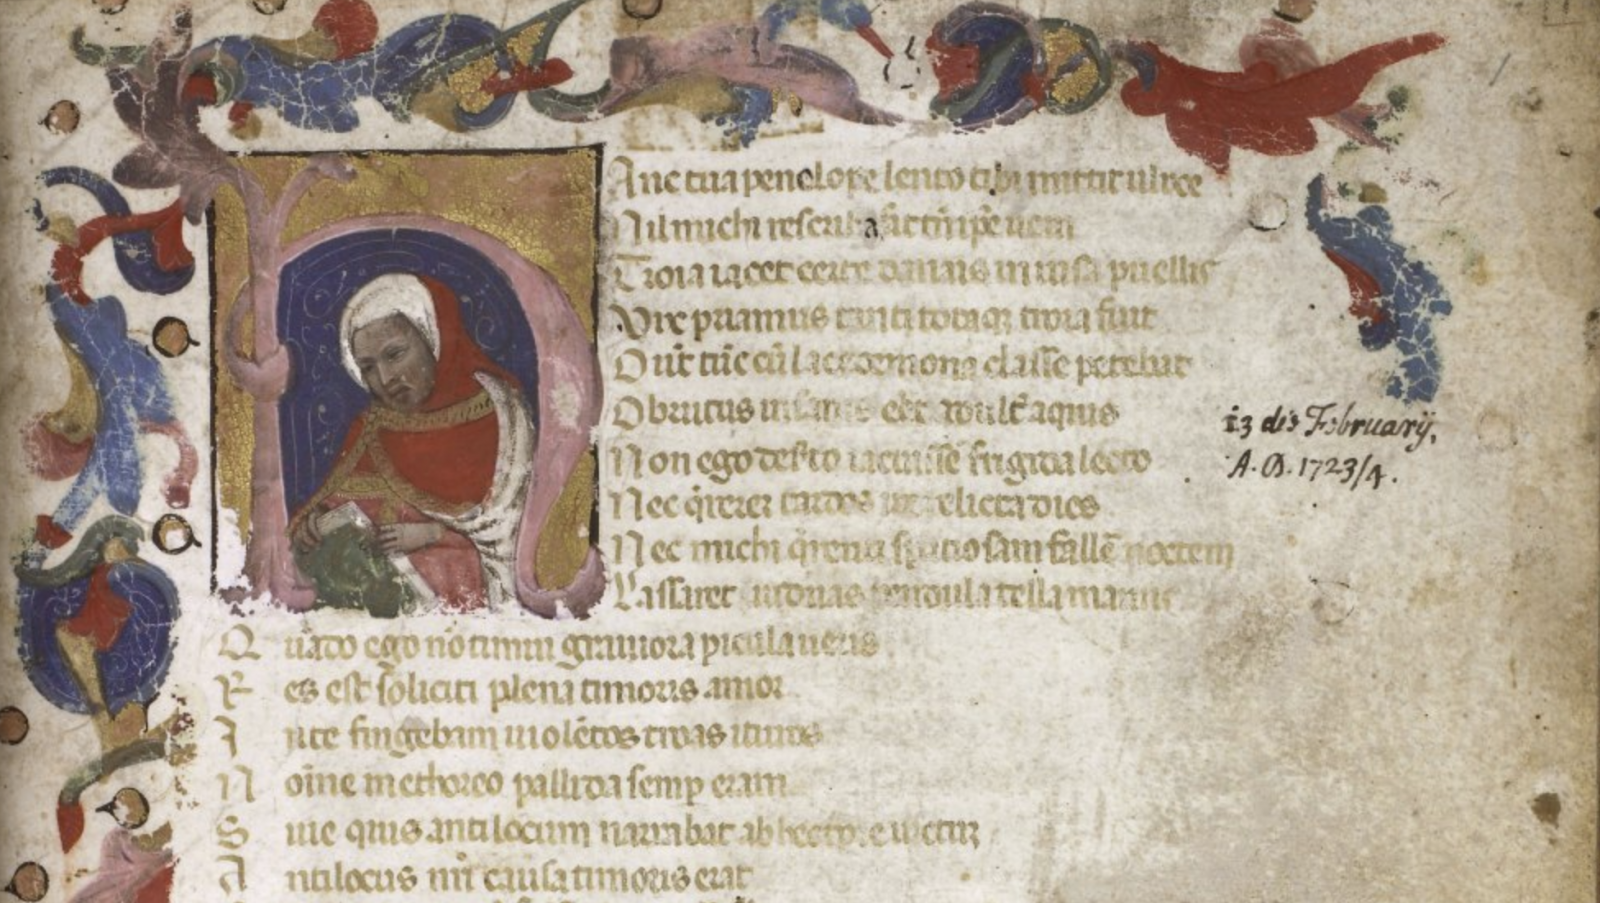 HAnc tua penelope lento tibi mittit ulixe
Nil michi rescribas attñ ip̃e ueni
Troia iacet certe danais inuisa puellis
Vix priamus tanti totaqȝ troia fuit
O ut̃ tũc cũ lacedemona classe petebat
Obrutus insanis eet̃ adult̃ aquis
Non ego deserto iacuissẽ frigida lecto
Nec q̃rerer tardos ire relicta dies
Nec michi q̃renti spatiosam fallẽ noctem
Lassaret uiduas pendula tella manus
Quãdo ego nõ timui grauiora picula ueris
Res est soliciti plena timoris amor
In te fingebam uiolẽtos troas ituros
Noĩne methoreo pallida semp eram
Siue quis antilocum narrabat ab hectore uictuȝ
Antilocus nr̃i causa timoris erat
i3 die February,
A. D. 1723/4.